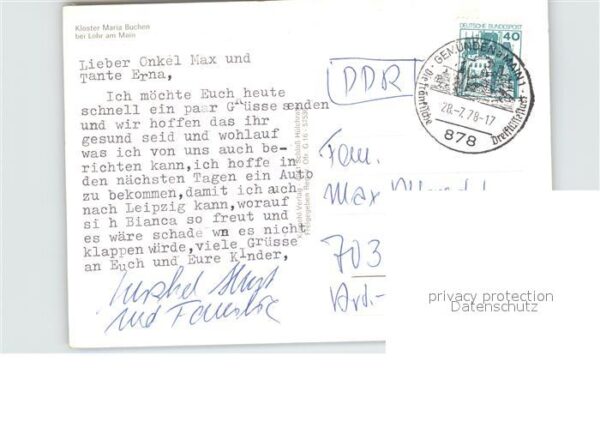 Kloster Maria Buchen
bei Lohr am Main
Lieber Onkel Max und
Tante Erna,
Ich möchte Euch heute
schnell ein paar Grüsse senden
und wir hoffen das ihr
gesund seid und wohlauf
was ich von uns auch be-
richten kann,ich hoffe in
den nächsten Tagen ein Auto
zu bekommen,damit ich auch
nach Leipzig kann,worauf
si h Bianca so freut und
es wäre schade wn es nicht
klappen würde,viele Grüsse
an Euch und Eure Kinder,
und Familie
DDR
DEUTSCHE BUNDESPOST
40
GEMÜNDEN (MAIN) 1
Die fränkische
Dreiflüssestadt
28.-7.78-17
878
Fam.
Max
703
privacy protection
Datenschutz